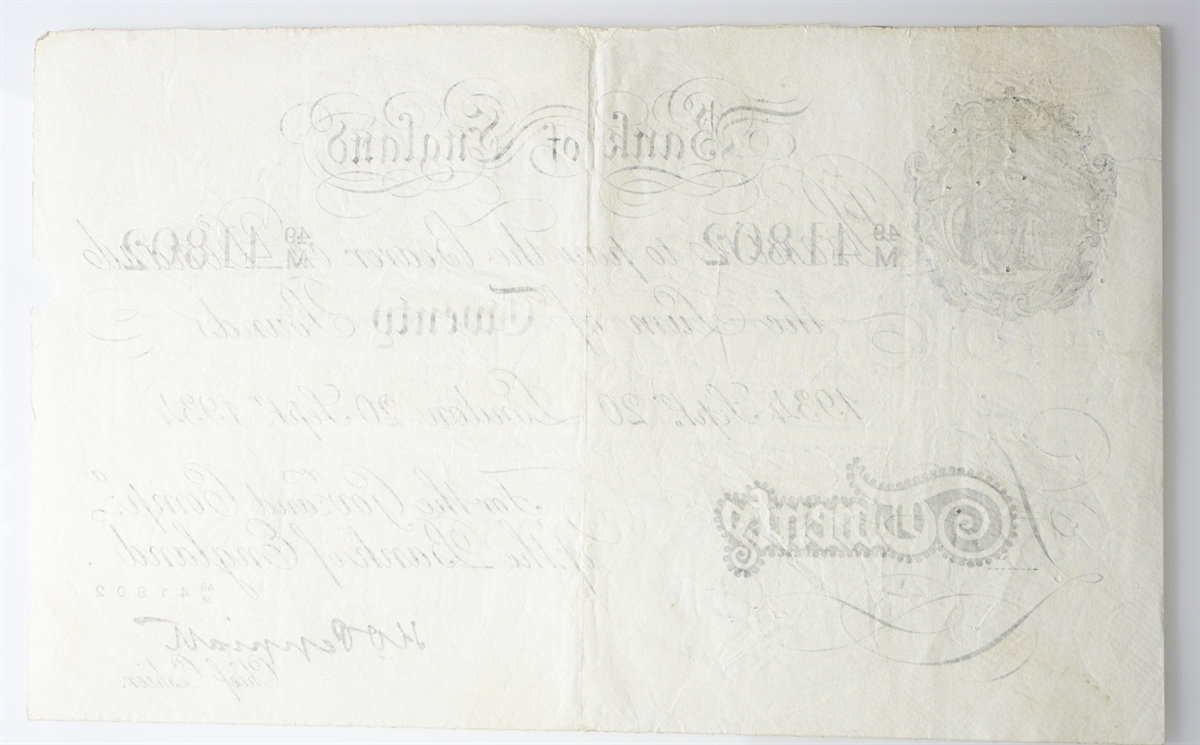 Bank of England
49/M 41802 to pay the Bearer 49/M 41802
the Sum of Twenty Pounds
1934 Sept. 20 London 20 Sept. 1934
For the Gov.r and Comp.a
of the Bank of England.
Twenty
49/M 41802
K O Peppiatt
Chief Cashier.